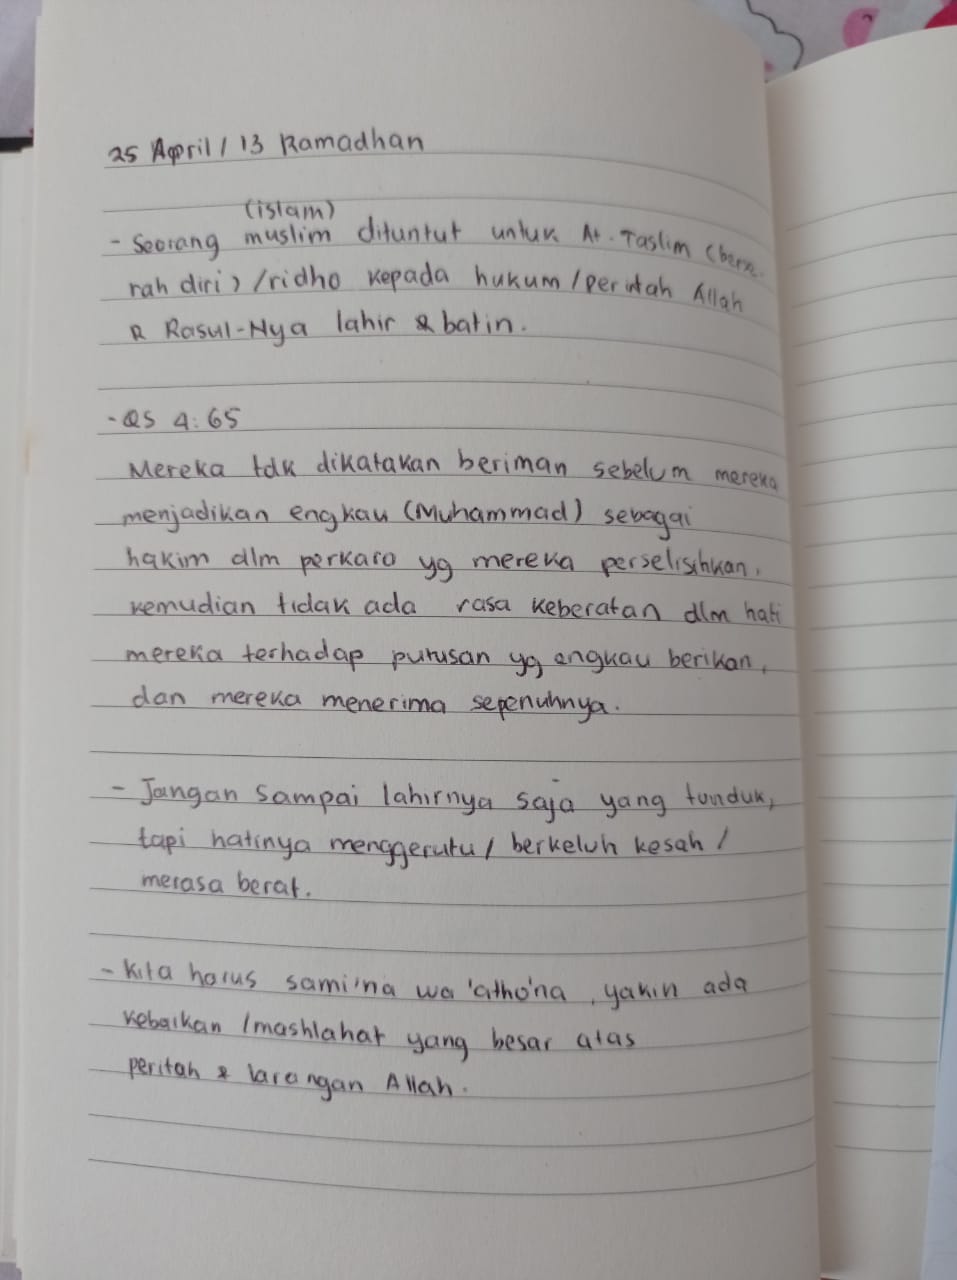 25 April / 13 Ramadhan
(islam)
- Seorang muslim dituntut untuk At-Taslim (berse-
rah diri) /ridho kepada hukum /perintah Allah
& Rasul-Nya lahir & batin.
- QS 4:65
Mereka tdk dikatakan beriman sebelum mereka
menjadikan engkau (Muhammad) sebagai
hakim dlm perkara yg mereka perselisihkan,
kemudian tidak ada rasa keberatan dlm hati
mereka terhadap putusan yg engkau berikan,
dan mereka menerima sepenuhnya.
- Jangan sampai lahirnya saja yang tunduk,
tapi hatinya menggerutu / berkeluh kesah /
merasa berat.
- Kita harus sami'na wa 'atho'na, yakin ada
kebaikan /mashlahat yang besar atas
peritah & larangan Allah.